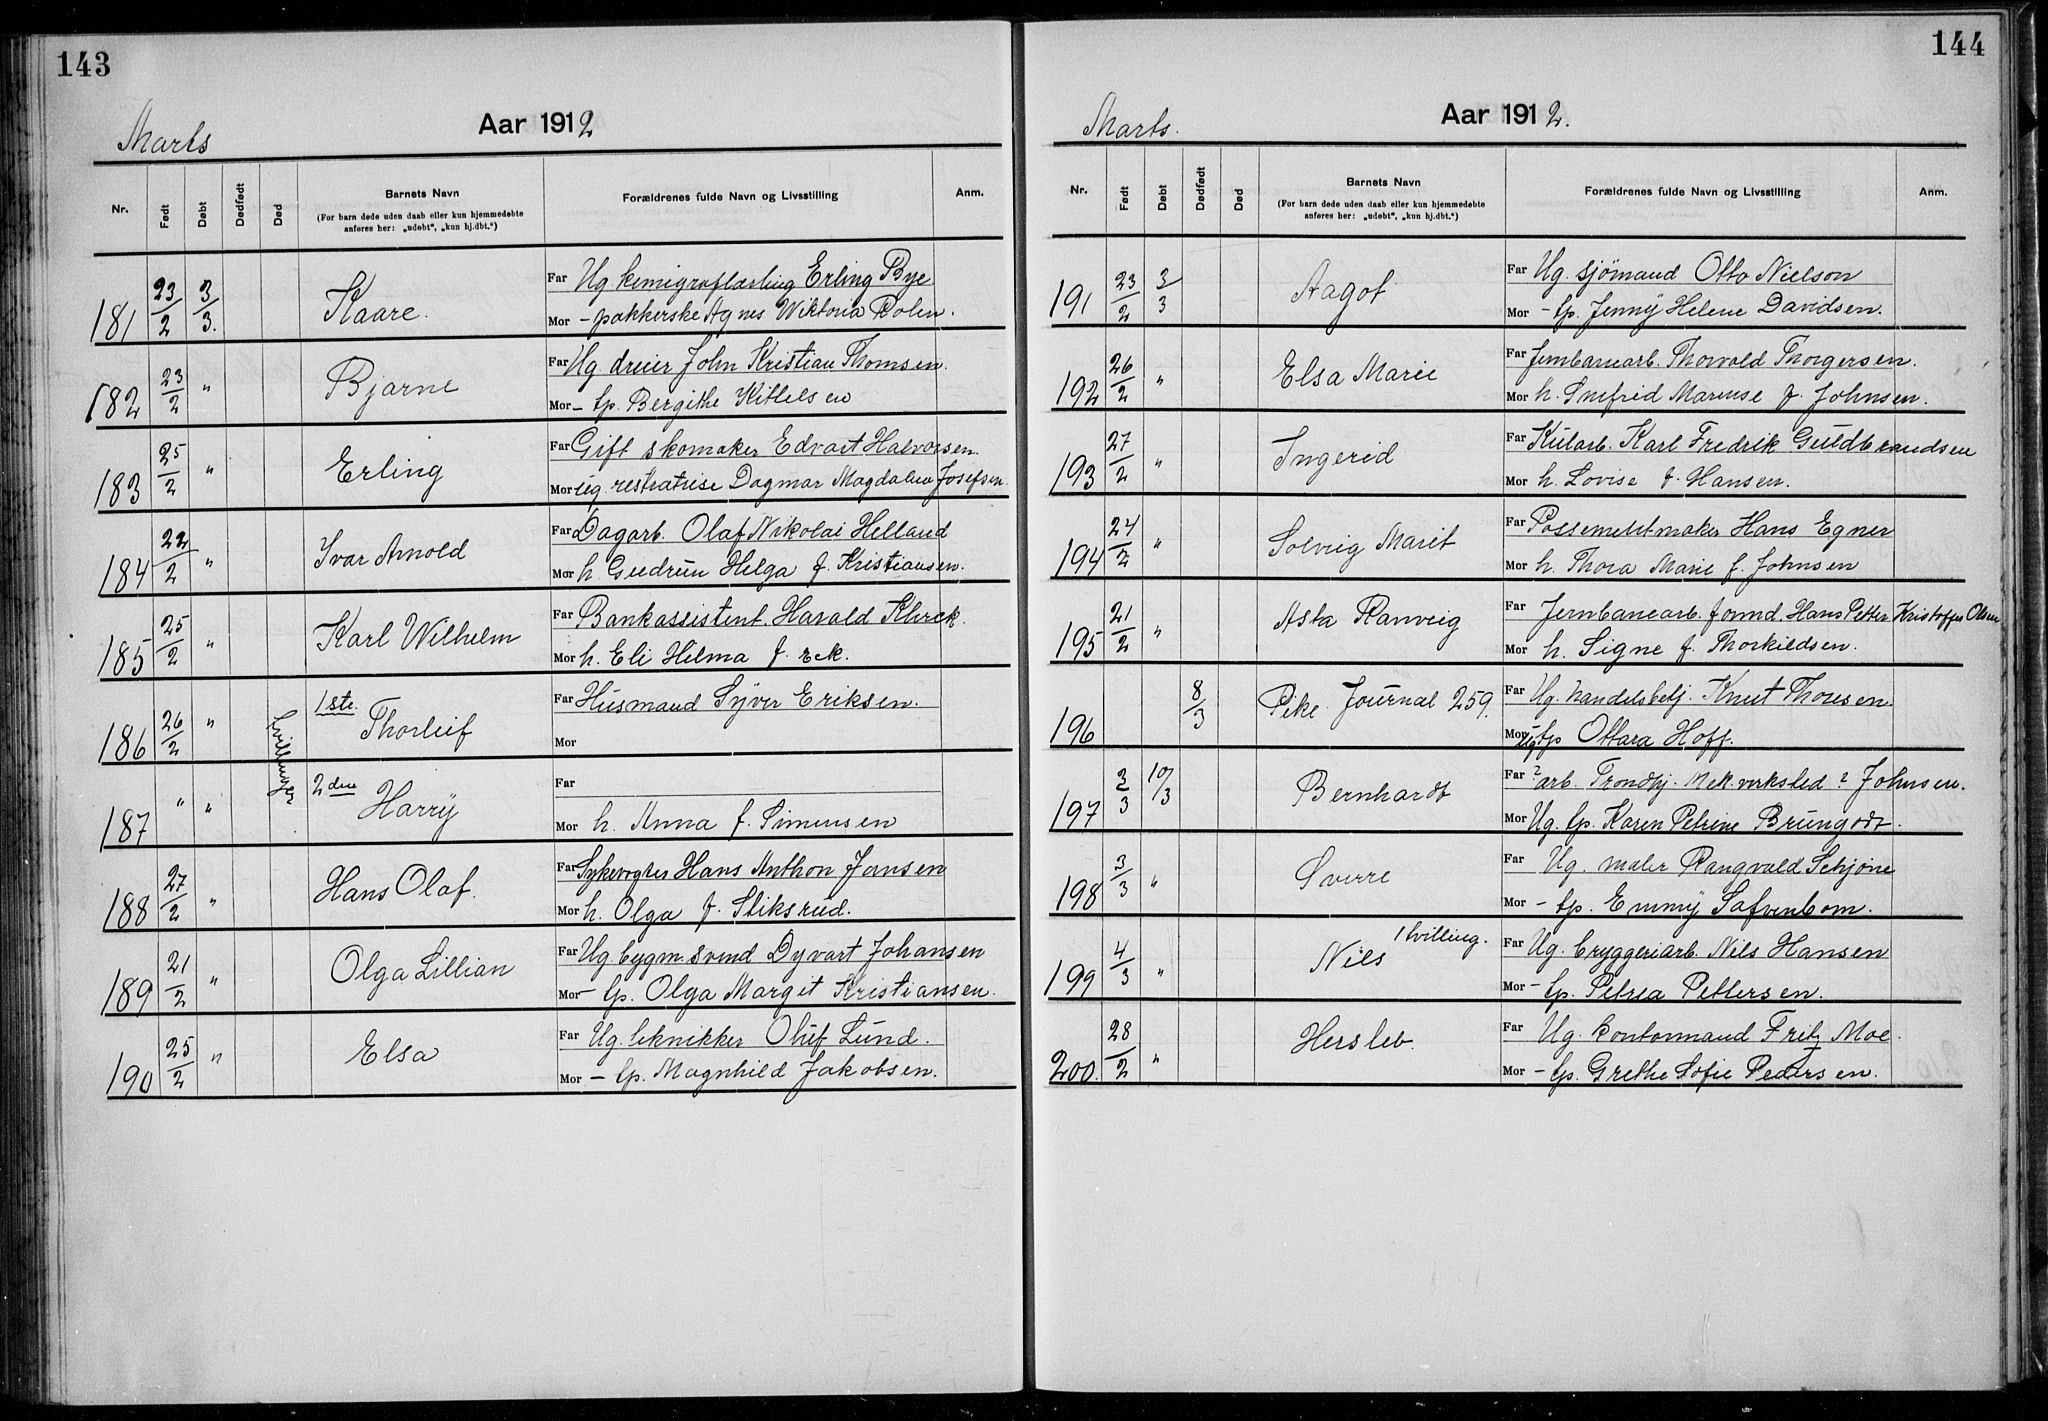 143
Aar 1912
Marts
Nr. Født Døbt Dødfødt Død Barnets Navn Forældrenes fulde Navn og Livsstilling Anm.
(For barn døde uden daab eller kun hjemmedøbte
anføres her: „udøbt“, „kun hj.dbt.“)
181 23/2 3/3. Kaare. Far Ug kemigraflærling Erling Bye
Mor - pakkerske Agnes Wiktoria Rolen.
182 23/2 " Bjarne Far Ug dreier John Kristian Thomsen.
Mor - tp. Bergithe Kittelsen
183 25/2 " Erling Far Gift skomaker Edvart Halvorsen.
Mor ug. restratrise Dagmar Magdalene Josefsen.
184 22/2 " Ivar Arnold Far Dagarb. Olaf Nikolai Helland
Mor h Gudrun Helga f. Kristiansen.
185 25/2 " Karl Wilhelm Far Bankassistent. Harald Klirck.
Mor h. Eli Hilma f. Eck.
186 26/2 " tvillinger 1ste. Thorleif Far Husmand Syver Eriksen.
Mor
187 " " 2den Harry Far
Mor h. Anna f. Simensen
188 27/2 " Hans Olaf. Far Sykevogter Hans Anthon Jansen
Mor h. Olga f. Sliksrud.
189 21/2 " Olga Lillian Far Ug. bygm. svend Dyvart Johansen
Mor - tp. Olga Margit Kristiansen.
190 25/2 " Elsa Far Ug. teknikker Oluf Lund.
Mor - tp. Magnhild Jakobsen.
144
Aar 1912.
Marts.
Nr. Født Døbt Dødfødt Død Barnets Navn Forældrenes fulde Navn og Livsstilling Anm.
(For barn døde uden daab eller kun hjemmedøbte
anføres her: „udøbt“, „kun hj.dbt.“)
191 23/2 3/3 Aagot Far Ug. sjömand Otto Nielson
Mor - tp. Jenny Helene Davidsen.
192 26/2 " Elsa Marie Far Jernbanearb. Thorvald Thorgersen.
Mor h. Snefrid Marense f. Johnsen.
193 27/2 " Ingerid Far Kularb. Karl Fredrik Guldbrandsen
Mor h. Lovise f. Hansen.
194 24/2 " Solveig Marit Far Possementmaker Hans Egner
Mor h. Thora Marie f. Johnsen
195 21/2 " Asta Ranveig Far Jernbanearb. formd. Hans Petter Kristoffer Olsen
Mor h. Signe f. Thorkildsen.
196 8/3 Pike. Journal 259. Far Ug. handelsbetj. Knut Thoresen.
Mor Ug tp Ottara Hoff.
197 2/3 10/3 Bernhardt Far ? arb. Trondhj. Mek. virksted ? Johnsen.
Mor Ug. tp. Karen Petrine Brungodt.
198 3/3 " Sverre Far Ug. maler Rangvald Schjöne
Mor - tp. Emmy Safvenbom.
199 4/3 " Nils 1 tvilling. Far Ug. bryggeriarb. Nils Hansen
Mor - tp. Petrea Pettersen.
200. 28/2 " Hersleb. Far Ug. kontormand Fritz Moe.
Mor - tp. Grethe Sofie Pedersen.